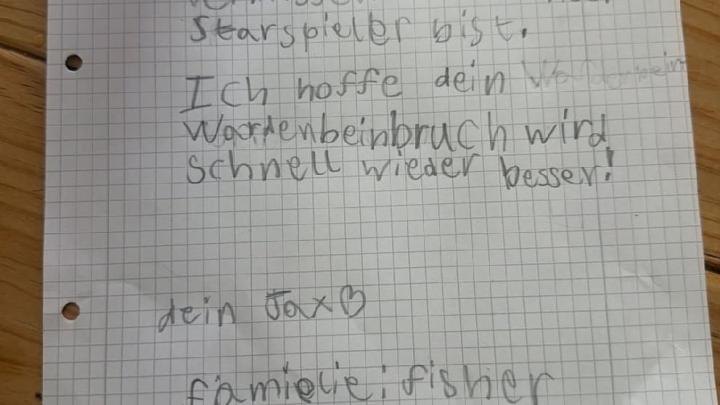 Starspieler bist.
Ich hoffe dein
Waordenbeinbruch wird
schnell wieder besser!
dein Jax
famielie: fisher